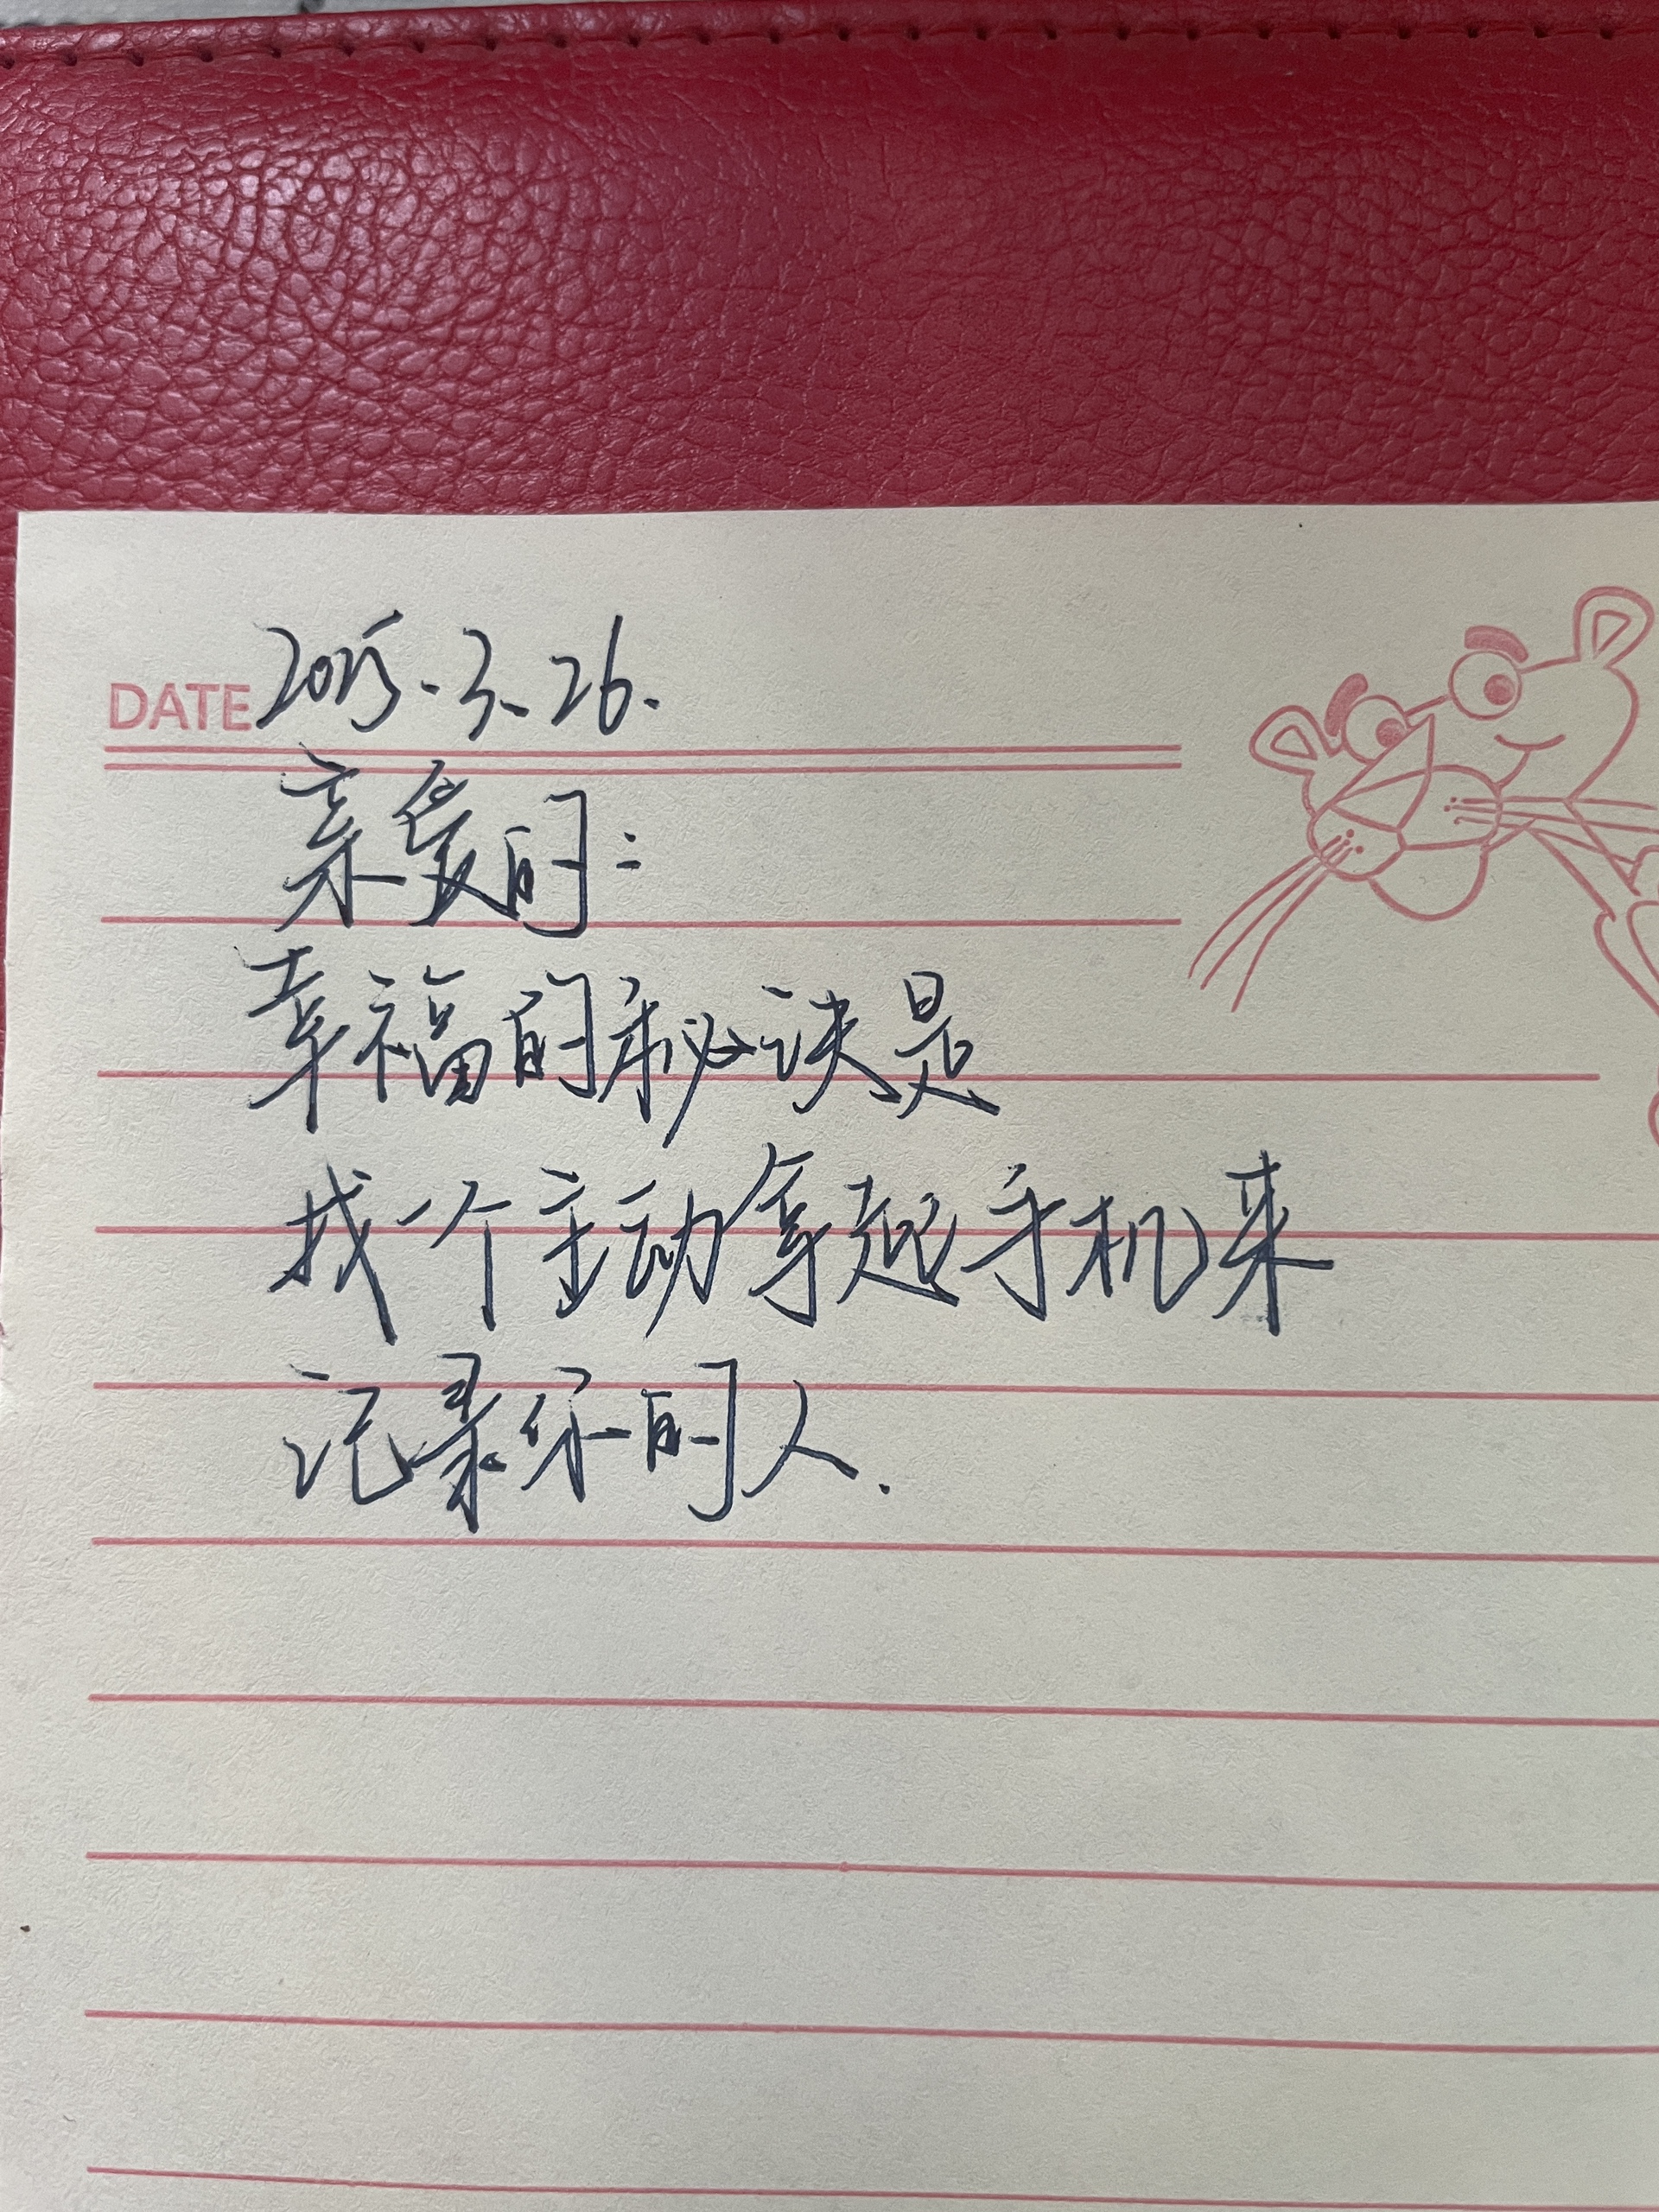 DATE 2025.3.26.
亲爱的:
幸福的秘诀是
找一个主动拿起手机来
记录你的人.